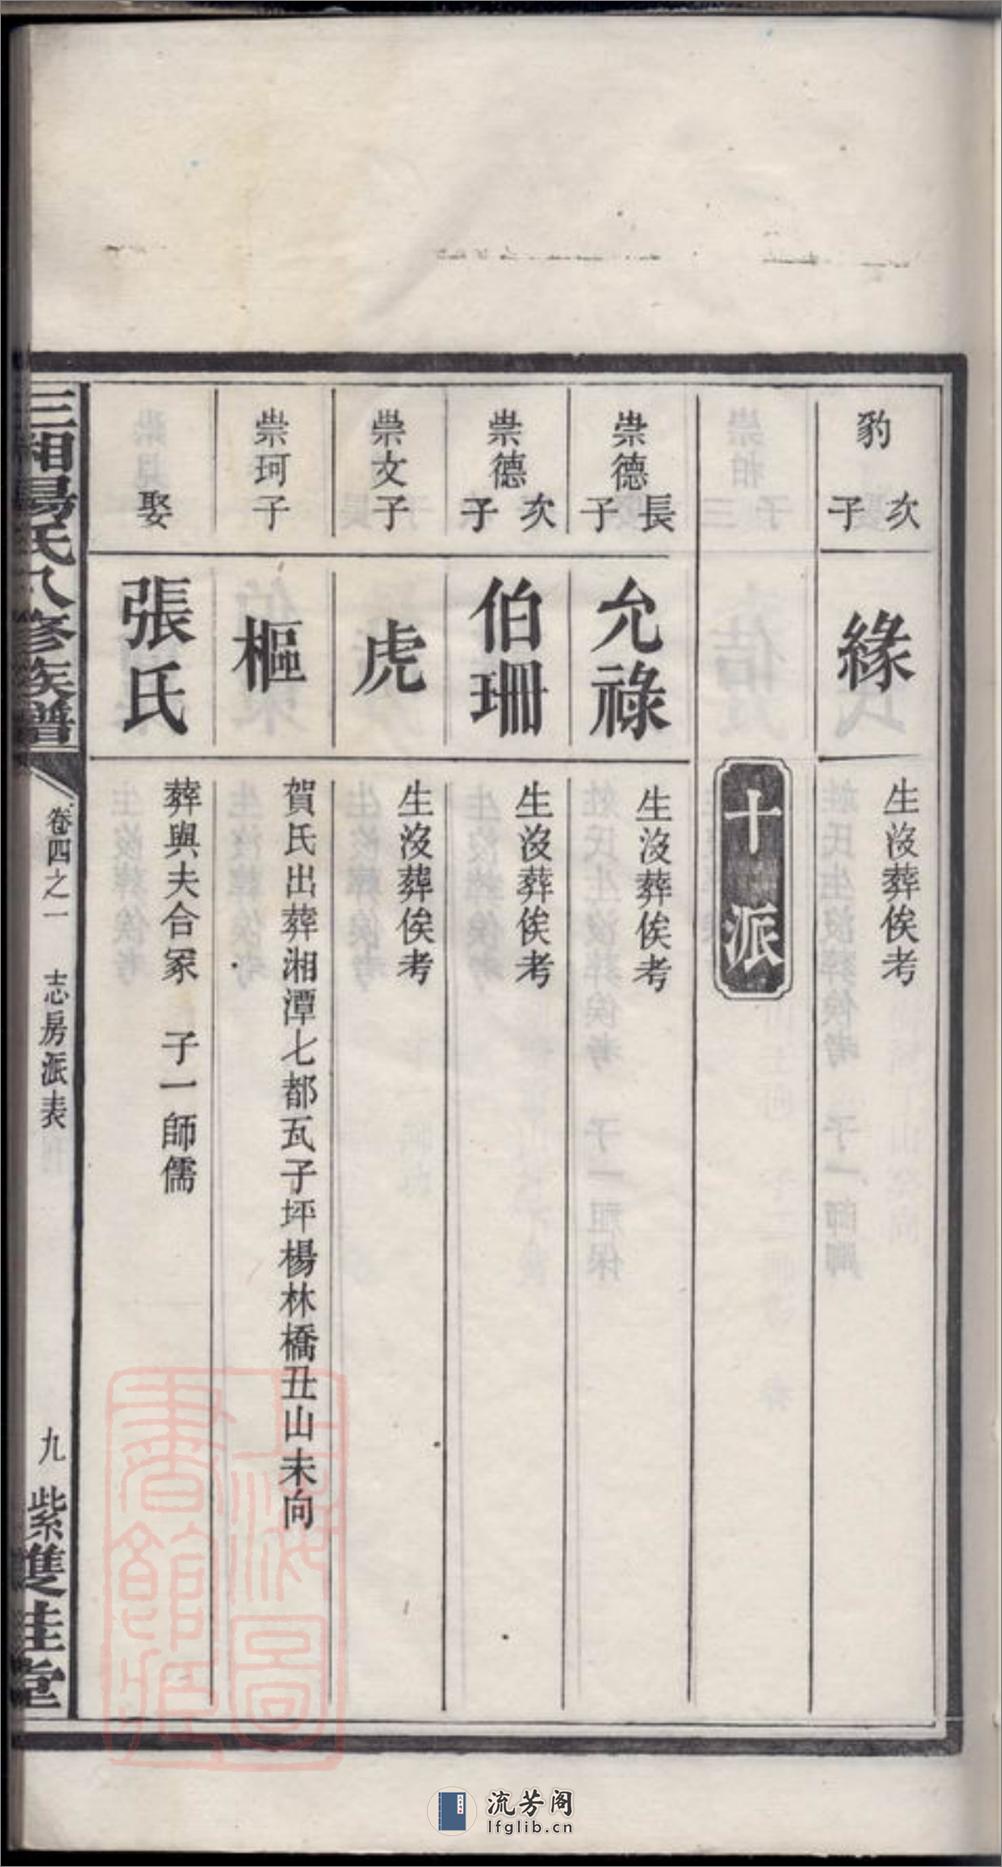 豹次子
緣
生沒葬俟考
十派
崇德長子
允祿
生沒葬俟考
崇德次子
伯珊
生沒葬俟考
崇文子
虎
生沒葬俟考
崇珂子
樞
賀氏出葬湘潭七都瓦子坪楊林橋丑山未向
娶
張氏
葬與夫合冢 子一師儒
三湘易氏八修族譜
卷四之一 志房派表
九
紫雙桂堂
上海圖書館藏
流芳阁
lfglib.cn